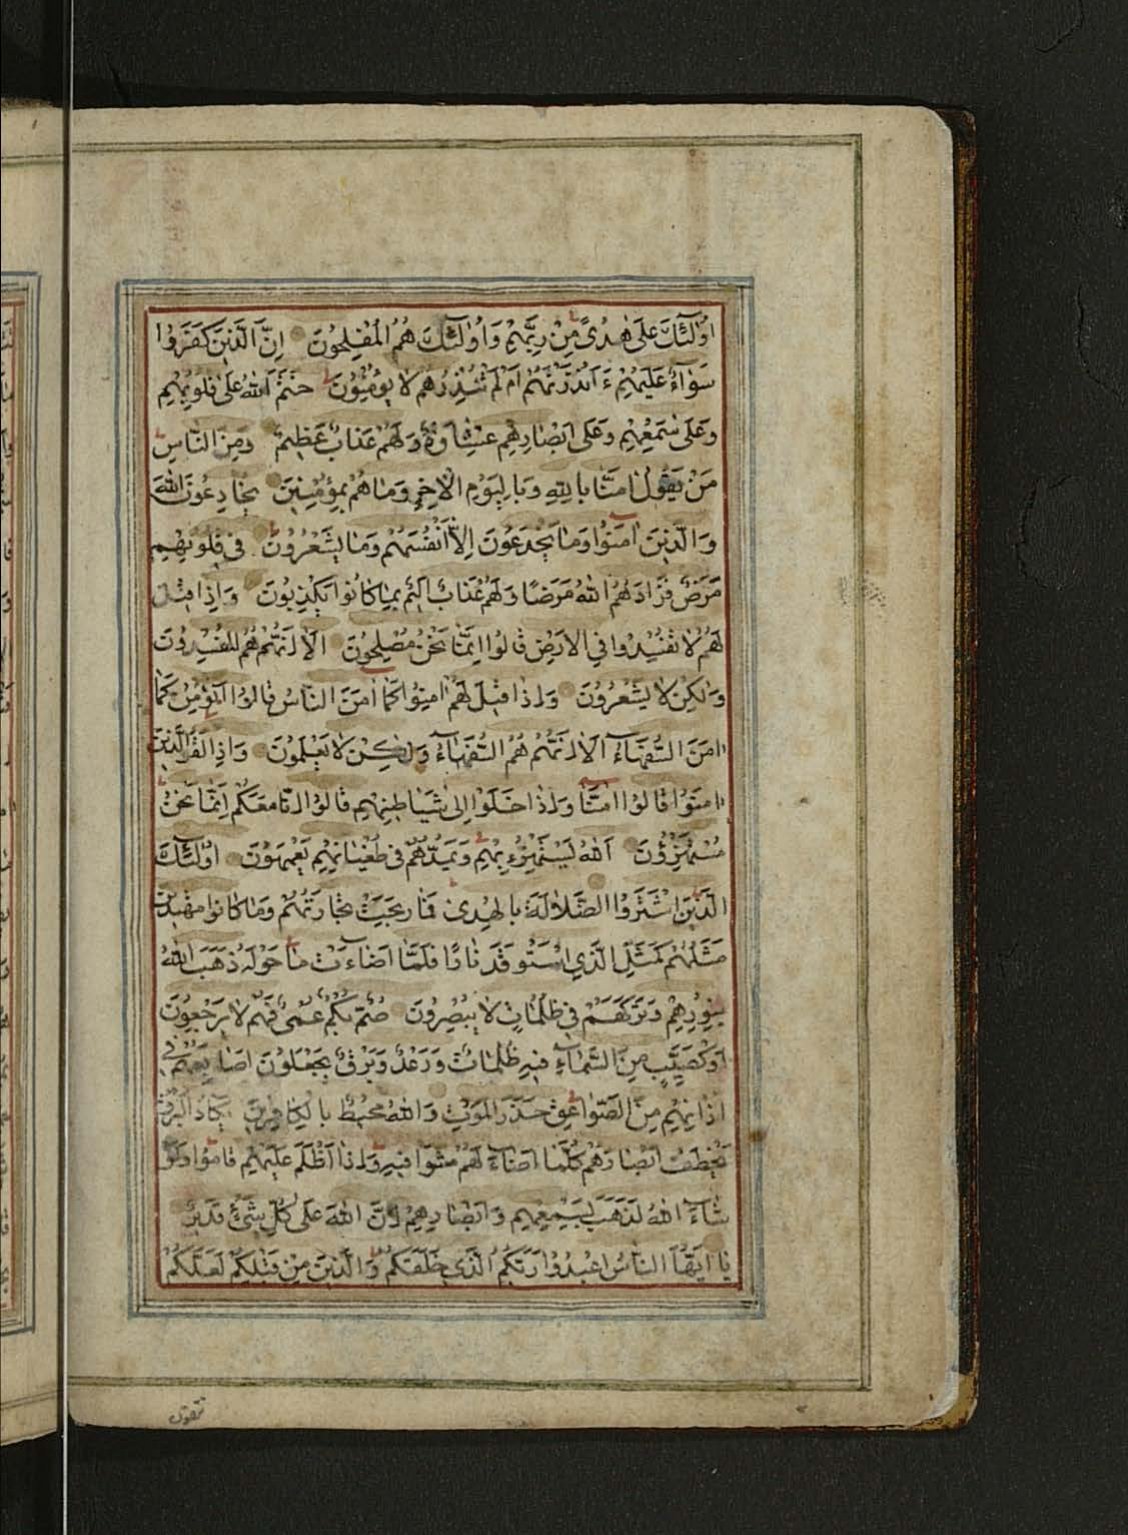 اُولٰٓئِكَ عَلٰى هُدًى مِنْ رَبِّهِمْ وَاُولٰٓئِكَ هُمُ الْمُفْلِحُونَ اِنَّ الَّذِينَ كَفَرُوا
سَوَآءٌ عَلَيْهِمْ ءَاَنْذَرْتَهُمْ اَمْ لَمْ تُنْذِرْهُمْ لَا يُؤْمِنُونَ خَتَمَ اللّٰهُ عَلٰى قُلُوبِهِمْ
وَعَلٰى سَمْعِهِمْ وَعَلٰى اَبْصَارِهِمْ غِشَاوَةٌ وَلَهُمْ عَذَابٌ عَظِيمٌ وَمِنَ النَّاسِ
مَنْ يَقُولُ اٰمَنَّا بِاللّٰهِ وَبِالْيَوْمِ الْاٰخِرِ وَمَا هُمْ بِمُؤْمِنِينَ يُخَادِعُونَ اللّٰهَ
وَالَّذِينَ اٰمَنُوا وَمَا يَخْدَعُونَ اِلَّا اَنْفُسَهُمْ وَمَا يَشْعُرُونَ فِى قُلُوبِهِمْ
مَرَضٌ فَزَادَهُمُ اللّٰهُ مَرَضًا وَلَهُمْ عَذَابٌ اَلِيمٌ بِمَا كَانُوا يَكْذِبُونَ وَاِذَا قِيلَ
لَهُمْ لَا تُفْسِدُوا فِي الْاَرْضِ قَالُوا اِنَّمَا نَحْنُ مُصْلِحُونَ اَلَا اِنَّهُمْ هُمُ الْمُفْسِدُونَ
وَلٰكِنْ لَا يَشْعُرُونَ وَاِذَا قِيلَ لَهُمْ اٰمِنُوا كَمَا اٰمَنَ النَّاسُ قَالُوا اَنُؤْمِنُ كَمَا
اٰمَنَ السُّفَهَآءُ اَلَا اِنَّهُمْ هُمُ السُّفَهَآءُ وَلٰكِنْ لَا يَعْلَمُونَ وَاِذَا لَقُوا الَّذِينَ
اٰمَنُوا قَالُوا اٰمَنَّا وَاِذَا خَلَوْا اِلٰى شَيَاطِينِهِمْ قَالُوا اِنَّا مَعَكُمْ اِنَّمَا نَحْنُ
مُسْتَهْزِؤُنَ اَللّٰهُ يَسْتَهْزِئُ بِهِمْ وَيَمُدُّهُمْ فِى طُغْيَانِهِمْ يَعْمَهُونَ اُولٰٓئِكَ
الَّذِينَ اشْتَرَوُا الضَّلَالَةَ بِالْهُدٰى فَمَا رَبِحَتْ تِجَارَتُهُمْ وَمَا كَانُوا مُهْتَدِينَ
مَثَلُهُمْ كَمَثَلِ الَّذِي اسْتَوْقَدَ نَارًا فَلَمَّا اَضَاءَتْ مَا حَوْلَهُ ذَهَبَ اللّٰهُ
بِنُورِهِمْ وَتَرَكَهُمْ فِى ظُلُمَاتٍ لَا يُبْصِرُونَ صُمٌّ بُكْمٌ عُمْىٌ فَهُمْ لَا يَرْجِعُونَ
اَوْ كَصَيِّبٍ مِنَ السَّمَآءِ فِيهِ ظُلُمَاتٌ وَرَعْدٌ وَبَرْقٌ يَجْعَلُونَ اَصَابِعَهُمْ فِى
اٰذَانِهِمْ مِنَ الصَّوَاعِقِ حَذَرَ الْمَوْتِ وَاللّٰهُ مُحِيطٌ بِالْكَافِرِينَ يَكَادُ الْبَرْقُ
يَخْطَفُ اَبْصَارَهُمْ كُلَّمَا اَضَآءَ لَهُمْ مَشَوْا فِيهِ وَاِذَا اَظْلَمَ عَلَيْهِمْ قَامُوا وَلَوْ
شَآءَ اللّٰهُ لَذَهَبَ بِسَمْعِهِمْ وَاَبْصَارِهِمْ اِنَّ اللّٰهَ عَلٰى كُلِّ شَىْءٍ قَدِيرٌ
يَا اَيُّهَا النَّاسُ اعْبُدُوا رَبَّكُمُ الَّذِى خَلَقَكُمْ وَالَّذِينَ مِنْ قَبْلِكُمْ لَعَلَّكُمْ
تتقون